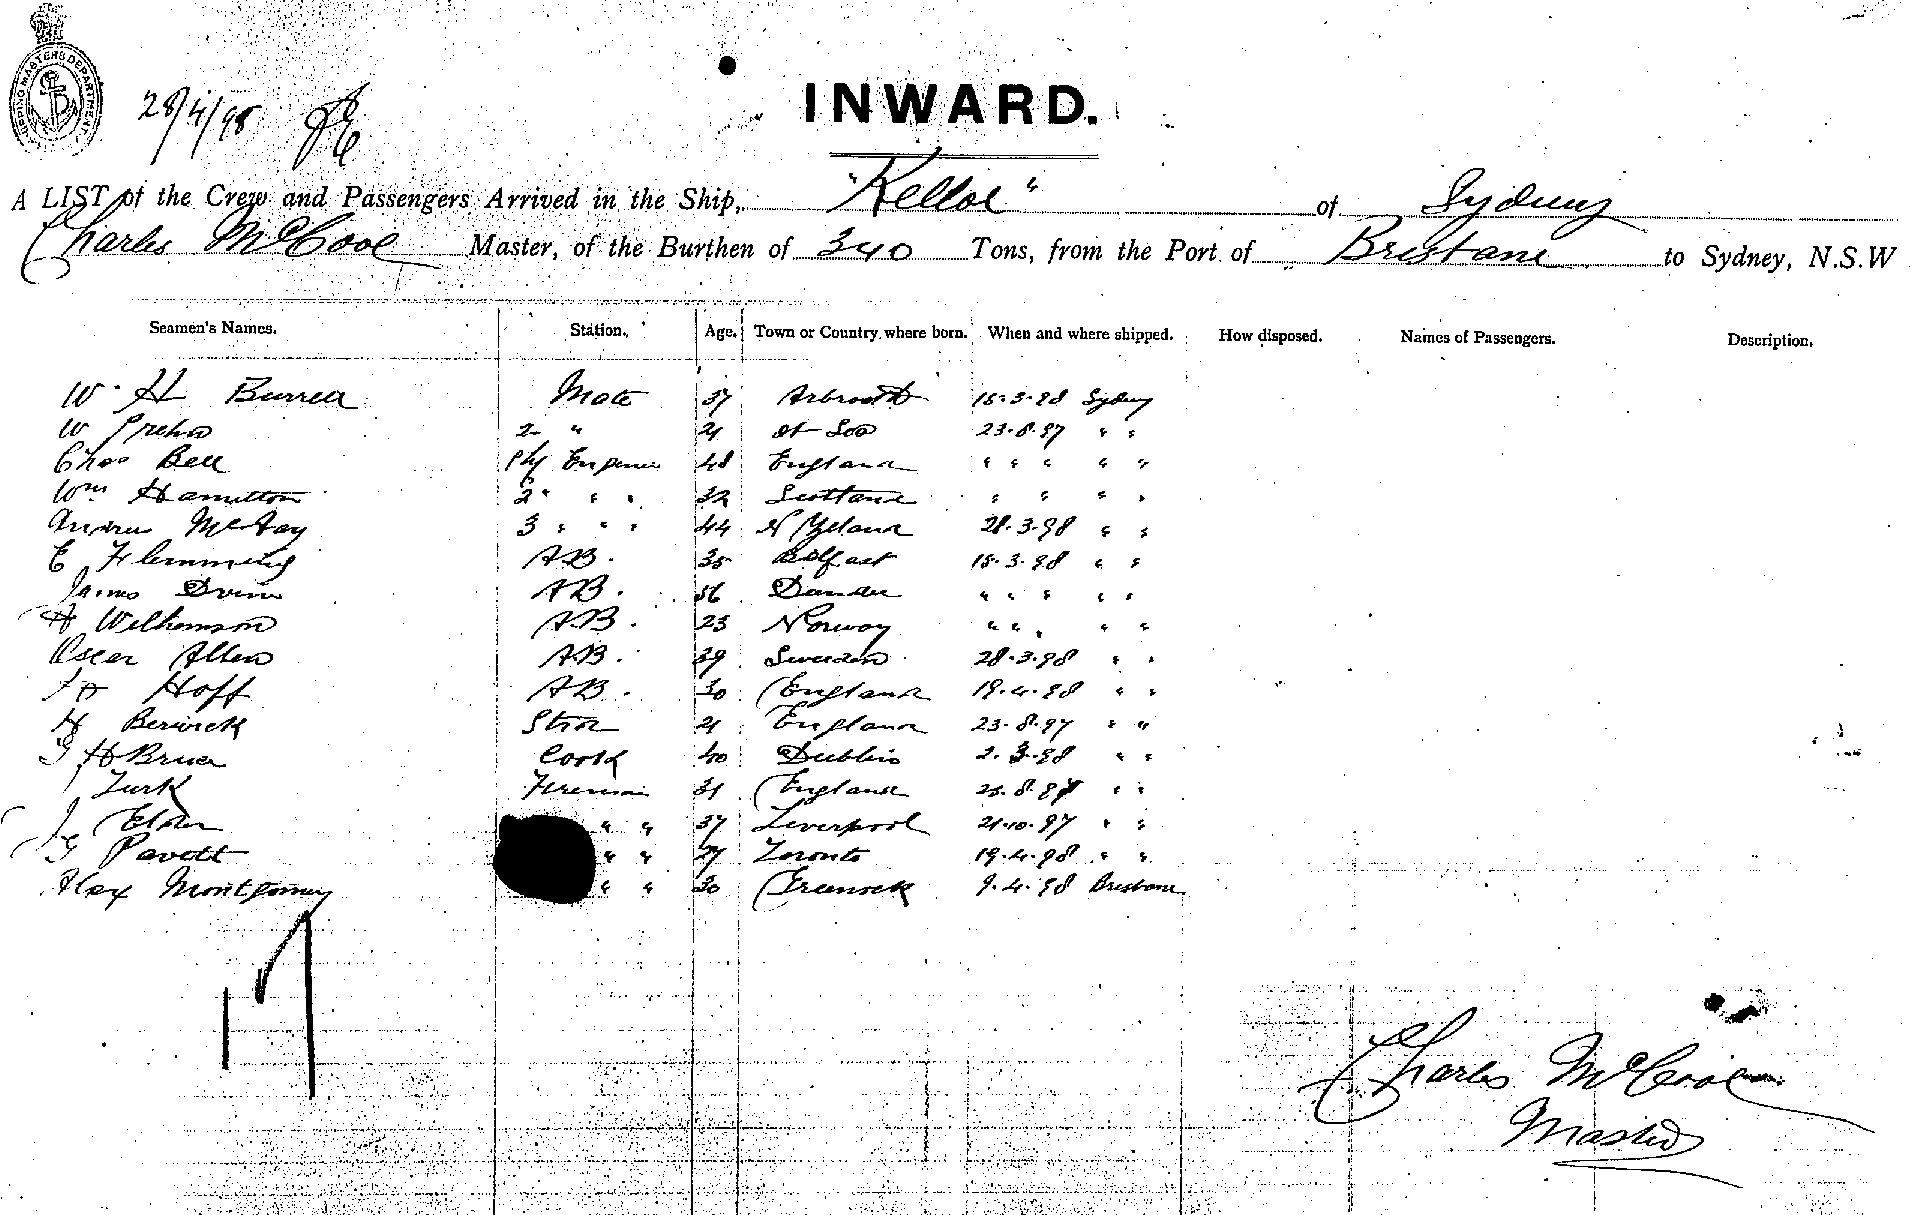 SHIPPING MASTERS DEPARTMENT
28/4/98
INWARD.
A LIST of the Crew and Passengers Arrived in the Ship, "Kelloe" of Sydney
Charles McCool Master, of the Burthen of 340 Tons, from the Port of Brisbane to Sydney, N.S.W
Seamen's Names. Station. Age. Town or Country where born. When and where shipped. How disposed. Names of Passengers. Description.
W. H Burrell Mate 37 Arbroath 15.3.98 Sydney
W 2 " 21 at Sea 23.8.97 " "
Chas Bell Engineer 48 England " " " " "
Wm Hamilton 2 " " " 32 Scotland " " " "
Andrew McFay 3 " " " 44 N Zeland 28.3.98 " "
E Flemming AB. 35 Belfast 15.3.98 " "
James AB. 36 Dundee " " " " "
H Wilhemson AB. 23 Norway " " " " "
Oscar Allen AB. 39 Sweden 28.3.98 " "
Hoff AB. 30 England 19.4.98 " "
H Berwick 21 England 23.8.97 " "
G H Bruce Cook 40 Dublin 2.3.98 " "
Turk Fireman 31 England 23.8.97 " "
J Elder " " 37 Liverpool 21.10.97 " "
G Pavett " " 27 Toronto 19.4.98 " "
Alex Montgomery " " 30 Greenock 9.4.98 Brisbane
17
Charles McCool
Master